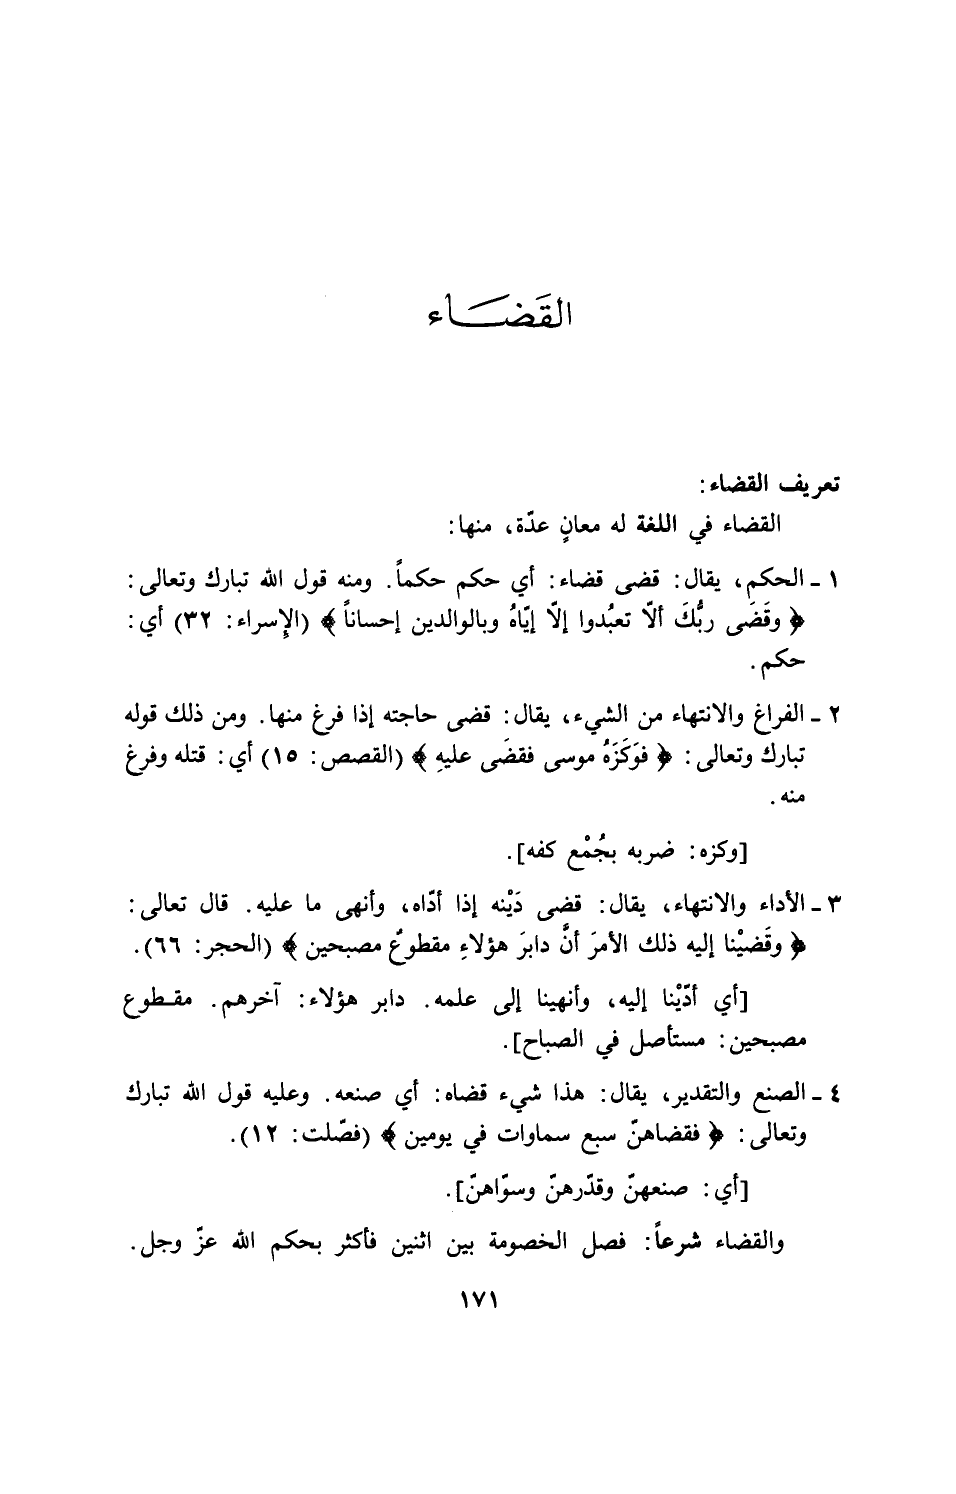 القَضَــاء
تعريف القضاء:
القضاء في اللغة له معانٍ عدّة، منها:
١ ـ الحكم، يقال: قضى قضاء: أي حكم حكماً. ومنه قول الله تبارك وتعالى:
﴿ وقَضَى ربُّكَ ألاّ تعبُدوا إلاّ إيّاهُ وبالوالدين إحساناً ﴾ (الإسراء: ٣٢) أي:
حكم.
٢ ـ الفراغ والانتهاء من الشيء، يقال: قضى حاجته إذا فرغ منها. ومن ذلك قوله
تبارك وتعالى: ﴿ فوَكَزَهُ موسى فقضَى عليهِ ﴾ (القصص: ١٥) أي: قتله وفرغ
منه.
[وكزه: ضربه بجُمْع كفه].
٣ ـ الأداء والانتهاء، يقال: قضى دَيْنه إذا أدّاه، وأنهى ما عليه. قال تعالى:
﴿ وقَضيْنا إليه ذلك الأمرَ أنَّ دابرَ هؤلاءِ مقطوعٌ مصبحين ﴾ (الحجر: ٦٦).
[أي أدّيْنا إليه، وأنهينا إلى علمه. دابر هؤلاء: آخرهم. مقـطوع
مصبحين: مستأصل في الصباح].
٤ ـ الصنع والتقدير، يقال: هذا شيء قضاه: أي صنعه. وعليه قول الله تبارك
وتعالى: ﴿ فقضاهنّ سبع سماوات في يومين ﴾ (فصّلت: ١٢).
[أي: صنعهنّ وقدّرهنّ وسوّاهنّ].
والقضاء شرعاً: فصل الخصومة بين اثنين فأكثر بحكم الله عزّ وجل.
١٧١